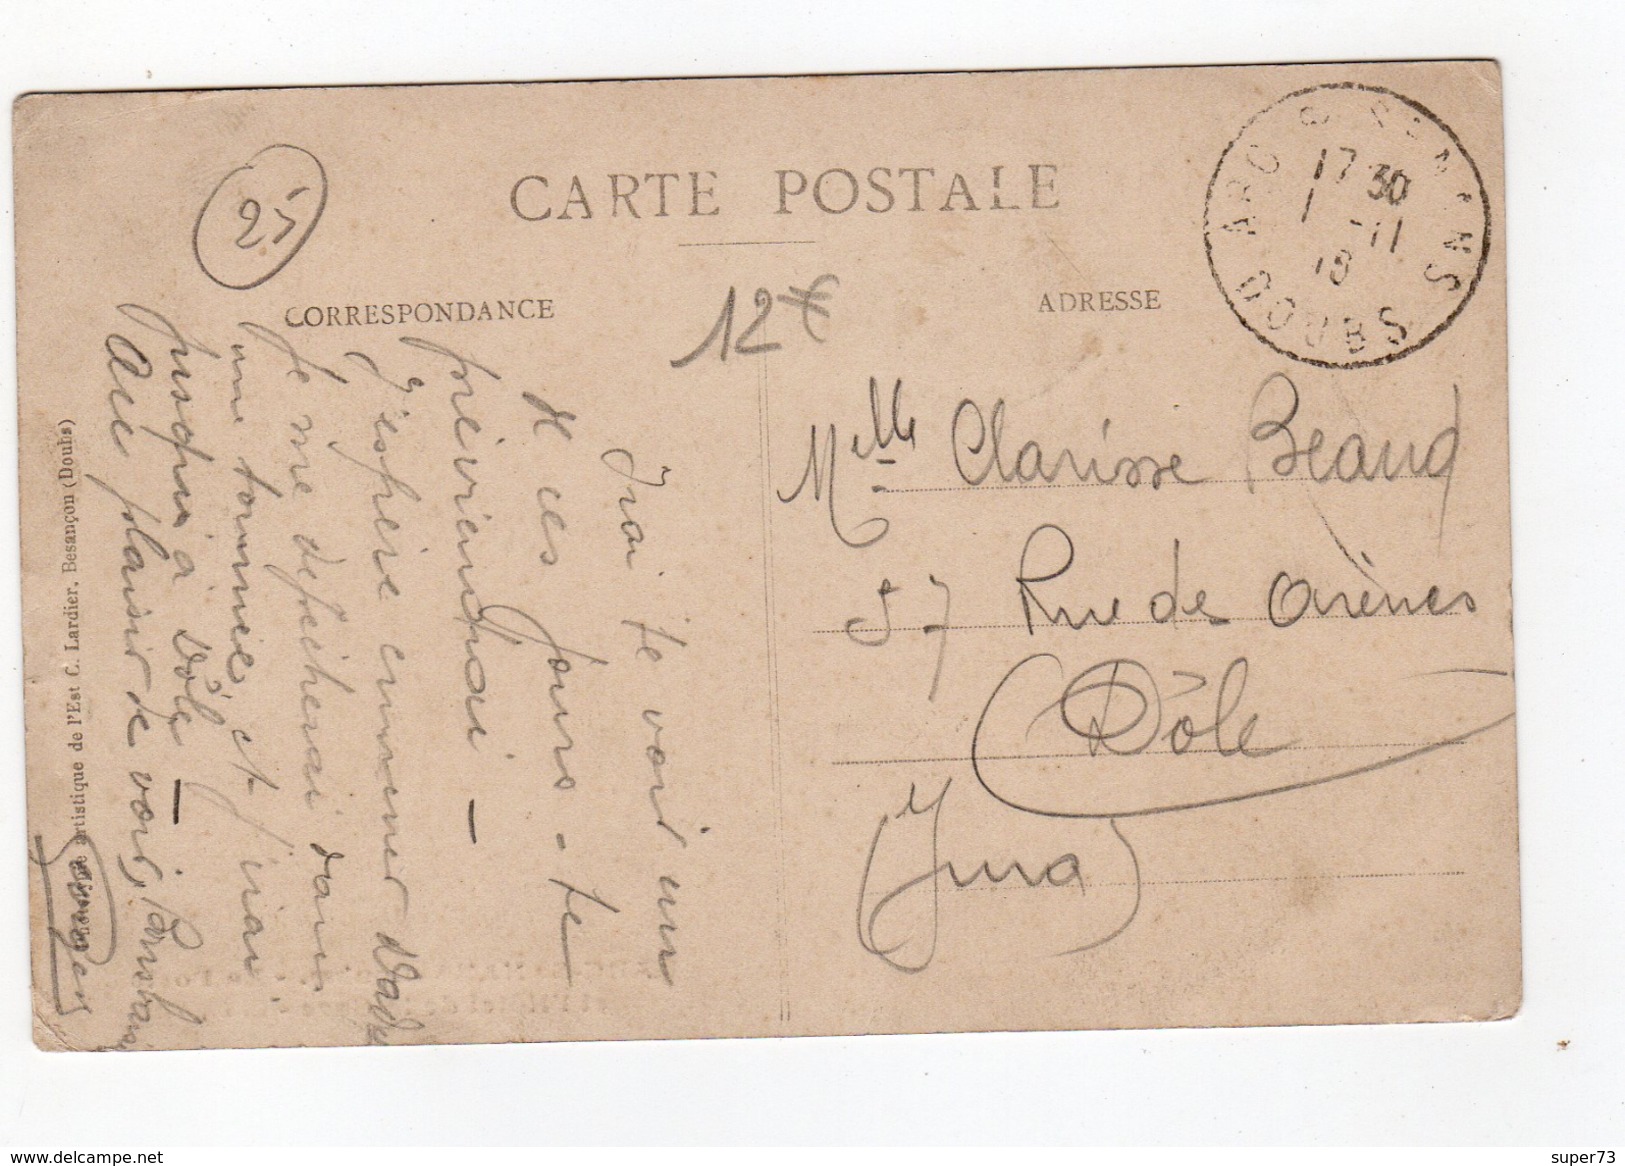 CARTE POSTALE
25
CORRESPONDANCE
12 €
ADRESSE
ARC & SENANS
17 30
1 -11
18
DOUBS
Irai te voir un
de ces jours - te
préviendrai -
J'espère emmener Dada
Je me dépêcherai dans
une tournée, et j'irai
jusqu'à Dôle -
Au plaisir de vous,
Mlle Clarisse Beaud
57 Rue des Arènes
Dôle
(Jura)
artistique de l'Est C. Lardier, Besançon (Doubs)
delcampe.net
super73